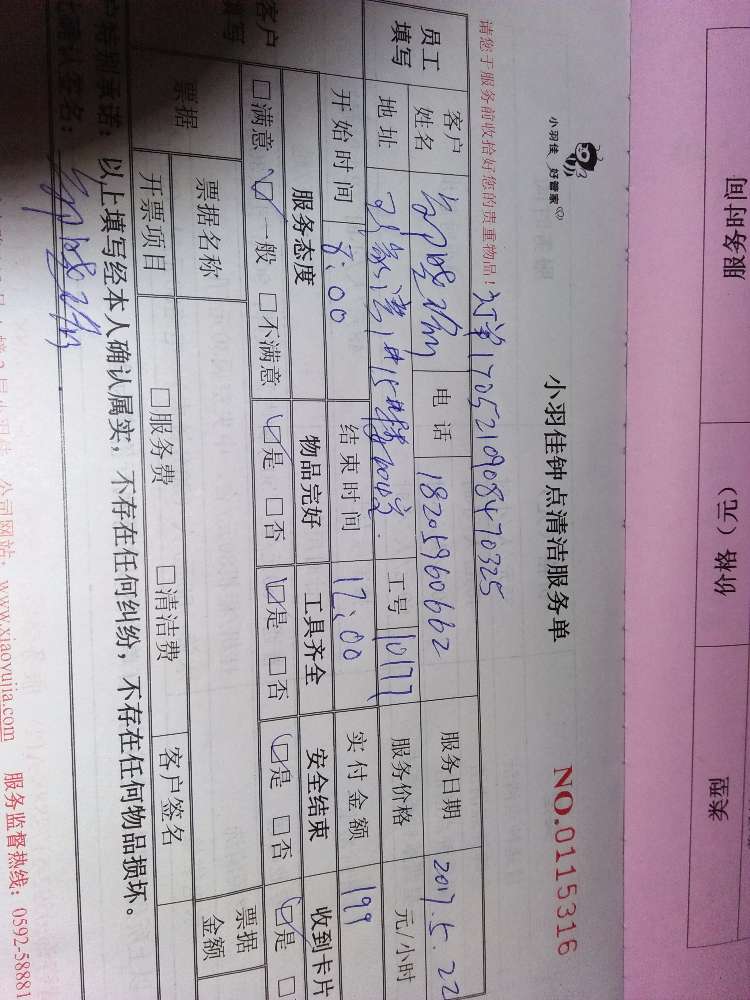 服务时间 价格（元） 类型
小羽佳 好管家
小羽佳钟点清洁服务单 NO.0115316
请您于服务前收拾好您的贵重物品！ 订单1705210908470325
员工填写 客户姓名 电话 18205960662 服务日期 2017.5.22
地址 工号 10177 服务价格 元/小时
开始时间 8:00 结束时间 12:00 实付金额 199
客户填写 服务态度 物品完好 工具齐全 安全结束 收到卡片
□满意 ☑一般 □不满意 ☑是 □否 ☑是 □否 ☑是 □否 ☑是 □
票据 票据名称 票据金额
开票项目 □服务费 □清洁费 客户签名
户特别承诺：以上填写经本人确认属实，不存在任何纠纷，不存在任何物品损坏。
确认签名：
公司网站：www.xiaoyujia.com 服务监督热线：0592-58881